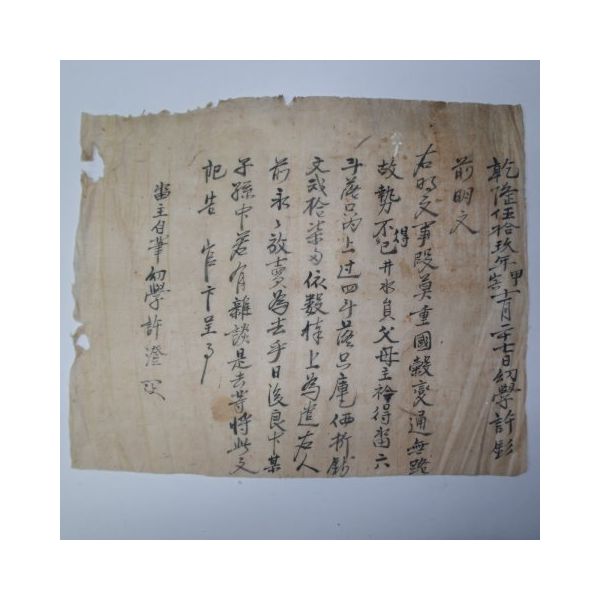 乾隆伍拾玖年甲寅十一月二十七日幼學許
前明文
右明文事段莫重國穀變通無路
故勢不得已井水員父母主衿得畓六
斗落只㐣上过四斗落只庫価折錢
文貳拾柒兩依數捧上為遣右人
前永永放賣為去乎日後良中某
子孫中若有雜談是去等將此文
記告官卞呈事
畓主自筆幼學許澄